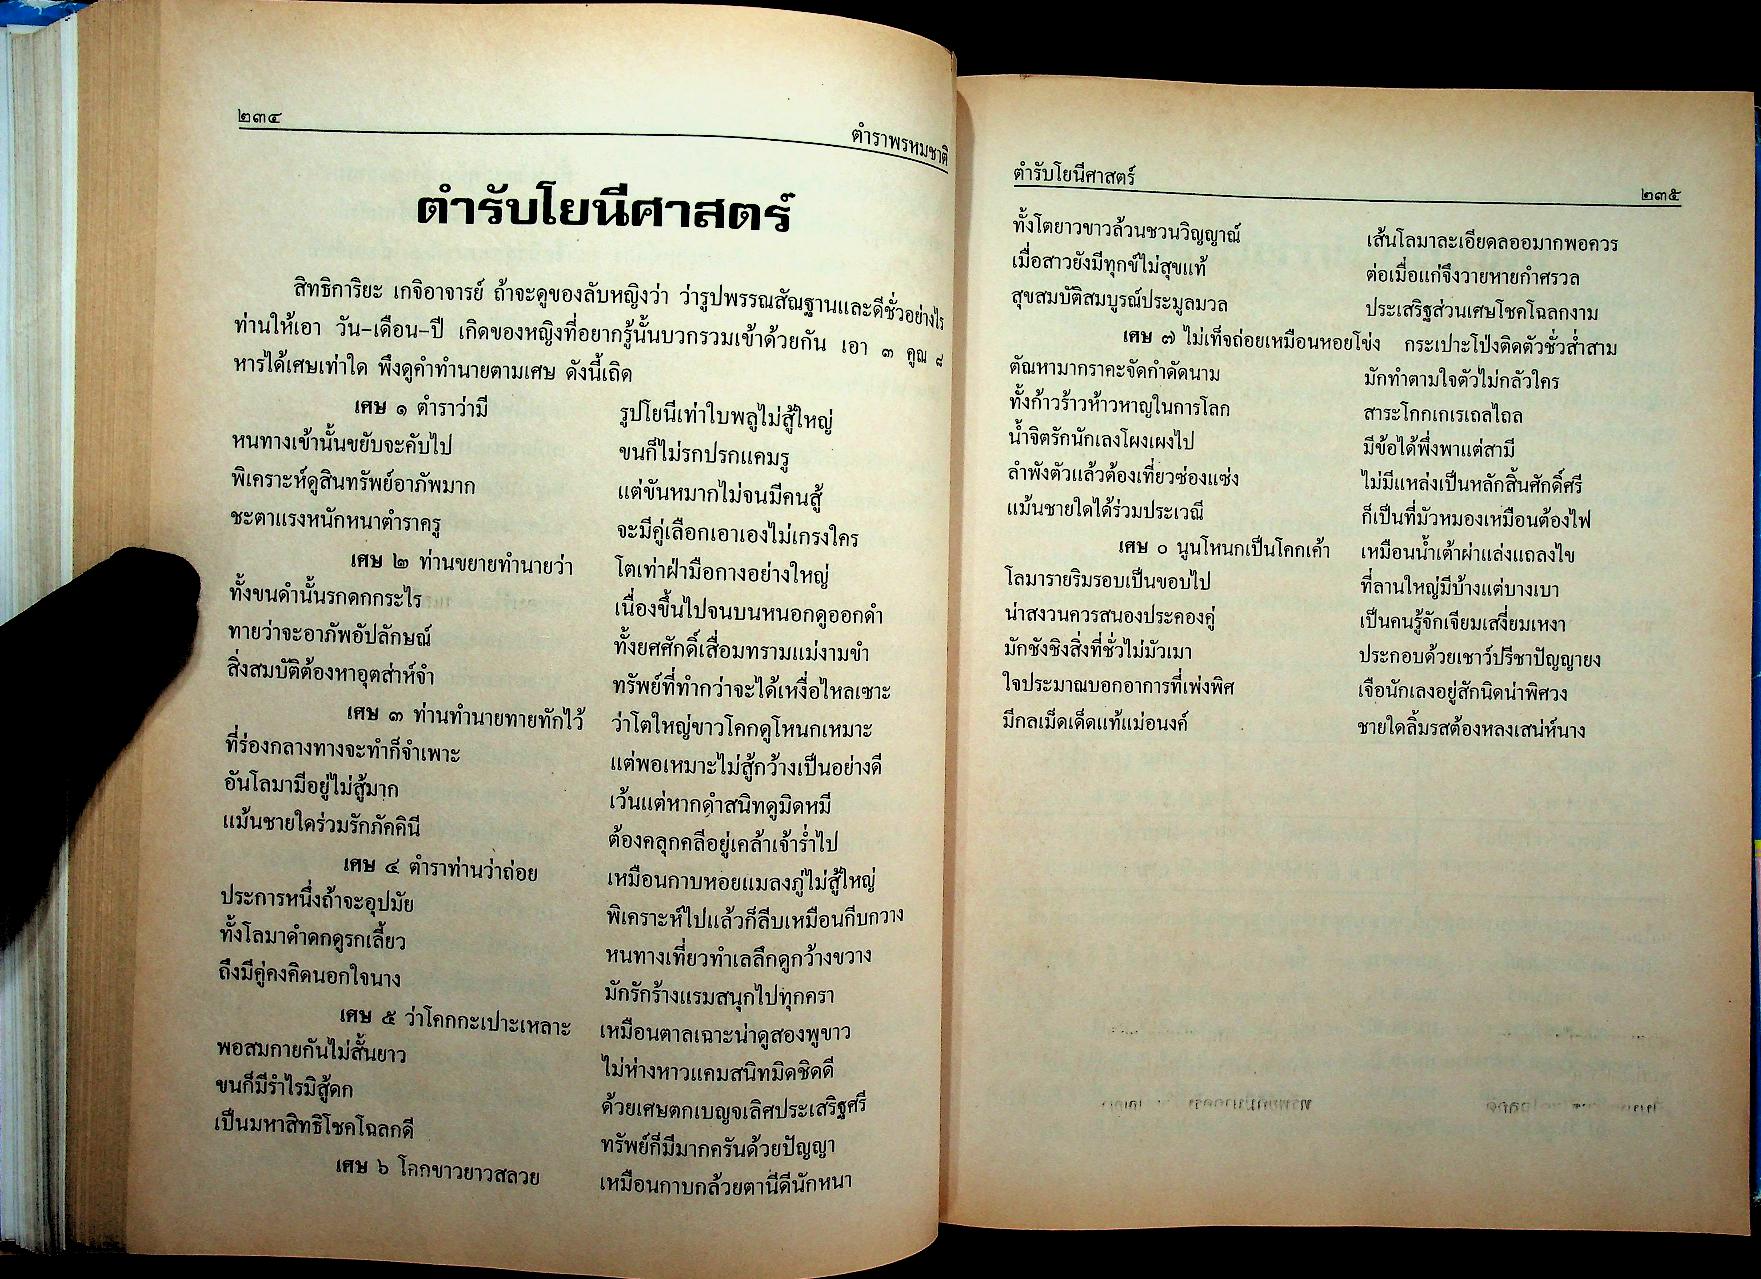 ๒๓๔
ตำราพรหมชาติ
ตำรับโยนีศาสตร์
สิทธิการิยะ เกจิอาจารย์ ถ้าจะดูของลับหญิงว่า ว่ารูปพรรณสัณฐานและดีชั่วอย่างไร
ท่านให้เอา วัน-เดือน-ปี เกิดของหญิงที่อยากรู้นั้นบวกรวมเข้าด้วยกัน เอา ๓ คูณ ๘
หารได้เศษเท่าใด พึงดูคำทำนายตามเศษ ดังนี้เถิด
เศษ ๑ ตำราว่ามี รูปโยนีเท่าใบพลูไม่สู้ใหญ่
หนทางเข้านั้นขยับจะคับไป ขนก็ไม่รกปรกแคมรู
พิเคราะห์ดูสินทรัพย์อาภัพมาก แต่ขันหมากไม่จนมีคนสู้
ชะตาแรงหนักหนาตำราครู จะมีคู่เลือกเอาเองไม่เกรงใคร
เศษ ๒ ท่านขยายทำนายว่า โตเท่าฝ่ามือกางอย่างใหญ่
ทั้งขนดำนั้นรกดกกระไร เนื่องขึ้นไปจนบนหนอกดูออกดำ
ทายว่าจะอาภัพอัปลักษณ์ ทั้งยศศักดิ์เสื่อมทรามแม่งามขำ
สิ่งสมบัติต้องหาอุตส่าห์จำ ทรัพย์ที่ทำกว่าจะได้เหงื่อไหลเซาะ
เศษ ๓ ท่านทำนายทายทักไว้ ว่าโตใหญ่ขาวโคกดูโหนกเหมาะ
ที่ร่องกลางทางจะทำก็จำเพาะ แต่พอเหมาะไม่สู้กว้างเป็นอย่างดี
อันโลมามีอยู่ไม่สู้มาก เว้นแต่หากดำสนิทดูมิดหมี
แม้นชายใดร่วมรักภัคคินี ต้องคลุกคลีอยู่เคล้าเจ้าร่ำไป
เศษ ๔ ตำราท่านว่าถ่อย เหมือนกาบหอยแมลงภู่ไม่สู้ใหญ่
ประการหนึ่งถ้าจะอุปมัย พิเคราะห์ไปแล้วก็ลีบเหมือนกีบกวาง
ทั้งโลมาดำดกดูรกเลี้ยว หนทางเที่ยวทำเลลึกดูกว้างขวาง
ถึงมีคู่คงคิดนอกใจนาง มักรักร้างแรมสนุกไปทุกครา
เศษ ๕ ว่าโคกกะเปาะเหลาะ เหมือนตาลเฉาะน่าดูสองพูขาว
พอสมกายกันไม่สั้นยาว ไม่ห่างหาวแคมสนิทมิดชิดดี
ขนก็มีรำไรมิสู้ดก ด้วยเศษตกเบญจเลิศประเสริฐศรี
เป็นมหาสิทธิโชคโฉลกดี ทรัพย์ก็มีมากครันด้วยปัญญา
เศษ ๖ โคกขาวยาวสลวย เหมือนกาบกล้วยตานีดีนักหนา
ตำรับโยนีศาสตร์
๒๓๕
ทั้งโตยาวขาวล้วนชวนวิญญาณ์ เส้นโลมาละเอียดลออมากพอควร
เมื่อสาวยังมีทุกข์ไม่สุขแท้ ต่อเมื่อแก่จึงวายหายกำศรวล
สุขสมบัติสมบูรณ์ประมูลมวล ประเสริฐส่วนเศษโชคโฉลกงาม
เศษ ๗ ไม่เท็จถ่อยเหมือนหอยโข่ง กระเปาะโป่งติดตัวชั่วส่ำสาม
ตัณหามากราคะจัดกำดัดนาม มักทำตามใจตัวไม่กลัวใคร
ทั้งก้าวร้าวห้าวหาญในการโลก สาระโกกเกเรเถลไถล
น้ำจิตรักนักเลงโผงเผงไป มีข้อได้พึ่งพาแต่สามี
ลำพังตัวแล้วต้องเที่ยวซ่องแซ่ง ไม่มีแหล่งเป็นหลักสิ้นศักดิ์ศรี
แม้นชายใดได้ร่วมประเวณี ก็เป็นที่มัวหมองเหมือนต้องไฟ
เศษ ๐ นูนโหนกเป็นโคกเค้า เหมือนน้ำเต้าผ่าแล่งแถลงไข
โลมารายริมรอบเป็นขอบไป ที่ลานใหญ่มีบ้างแต่บางเบา
น่าสงวนควรสนองประคองคู่ เป็นคนรู้จักเจียมเสงี่ยมเหงา
มักชังชิงสิ่งที่ชั่วไม่มัวเมา ประกอบด้วยเชาว์ปรีชาปัญญายง
ใจประมาณบอกอาการที่เพ่งพิศ เจือนักเลงอยู่สักนิดน่าพิศวง
มีกลเม็ดเด็ดแท้แม่อนงค์ ชายใดลิ้มรสต้องหลงเสน่ห์นาง